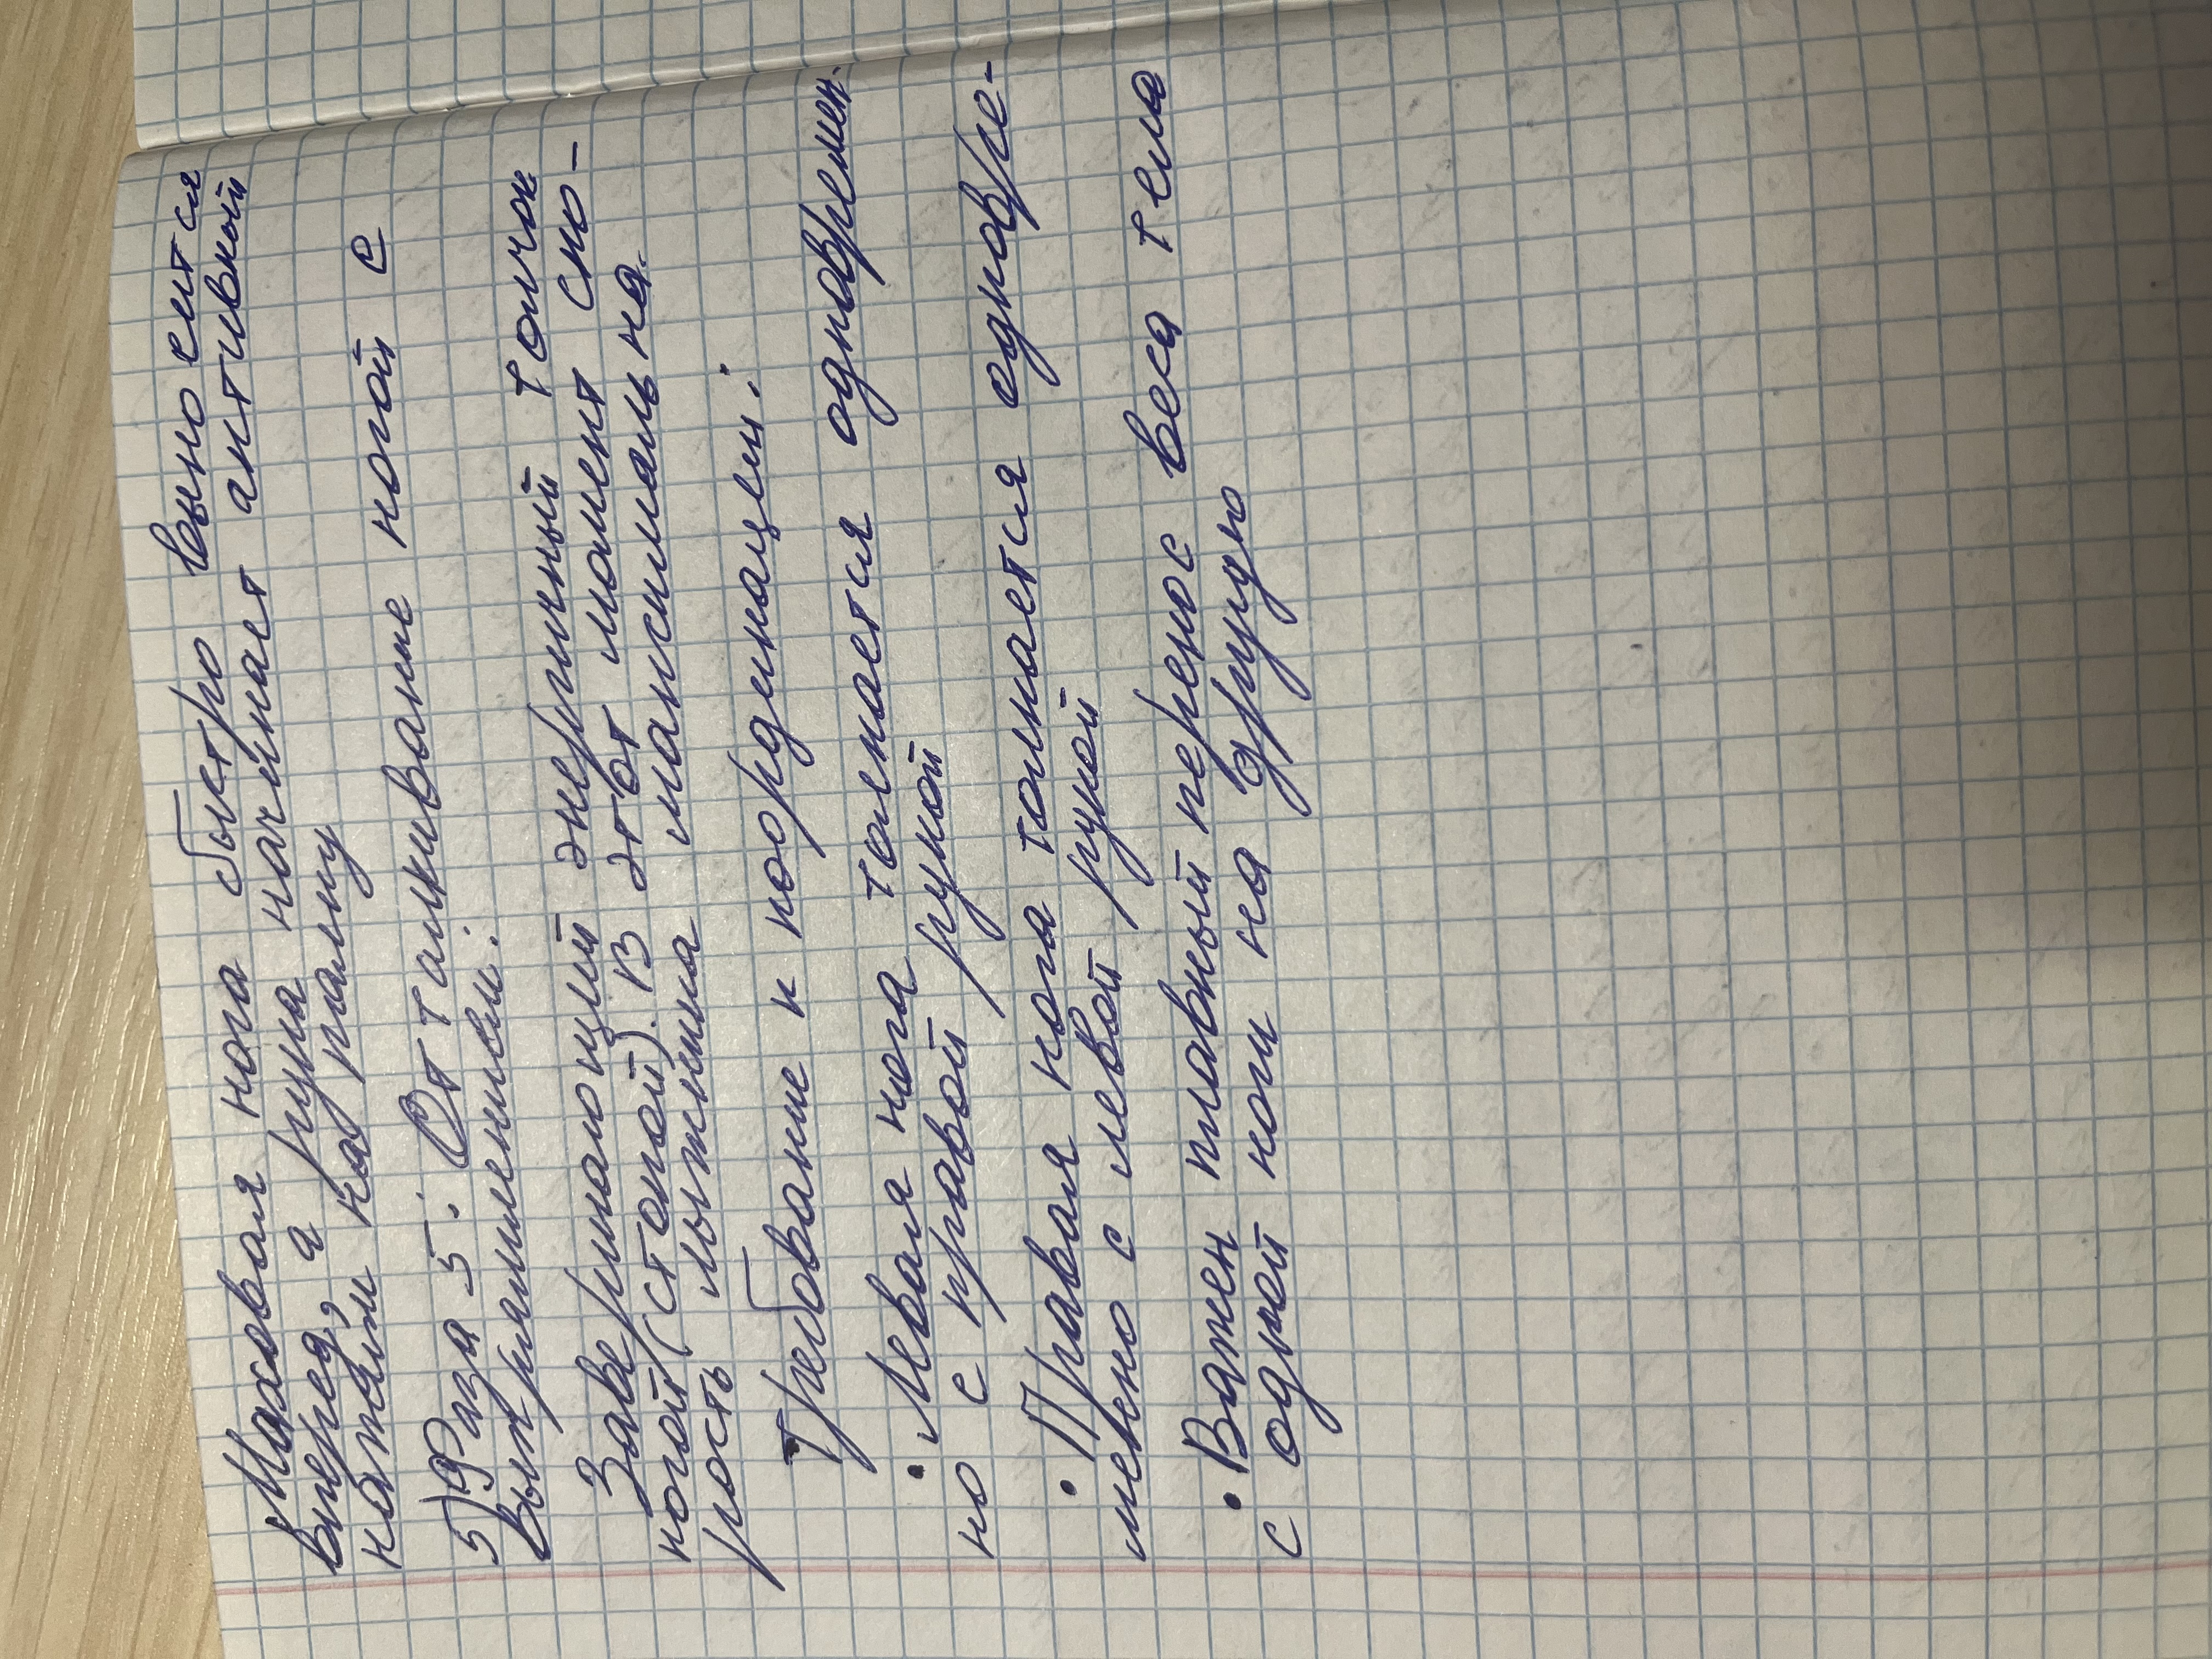 Маховая нога быстро выносится
вперед, а рука начинает активный
нажим на палку
5) Фаза 5: Отталкивание ногой с
выпрямлением:
Завершающий энергичный толчок
ногой (стопой). В этот момент ско-
рость лыжника максимальна.
Требование к координации:
• Левая нога толкается одновремен-
но с правой рукой
• Правая нога толкается одновре-
менно с левой рукой
• Важен плавный перенос веса тела
с одной ноги на другую